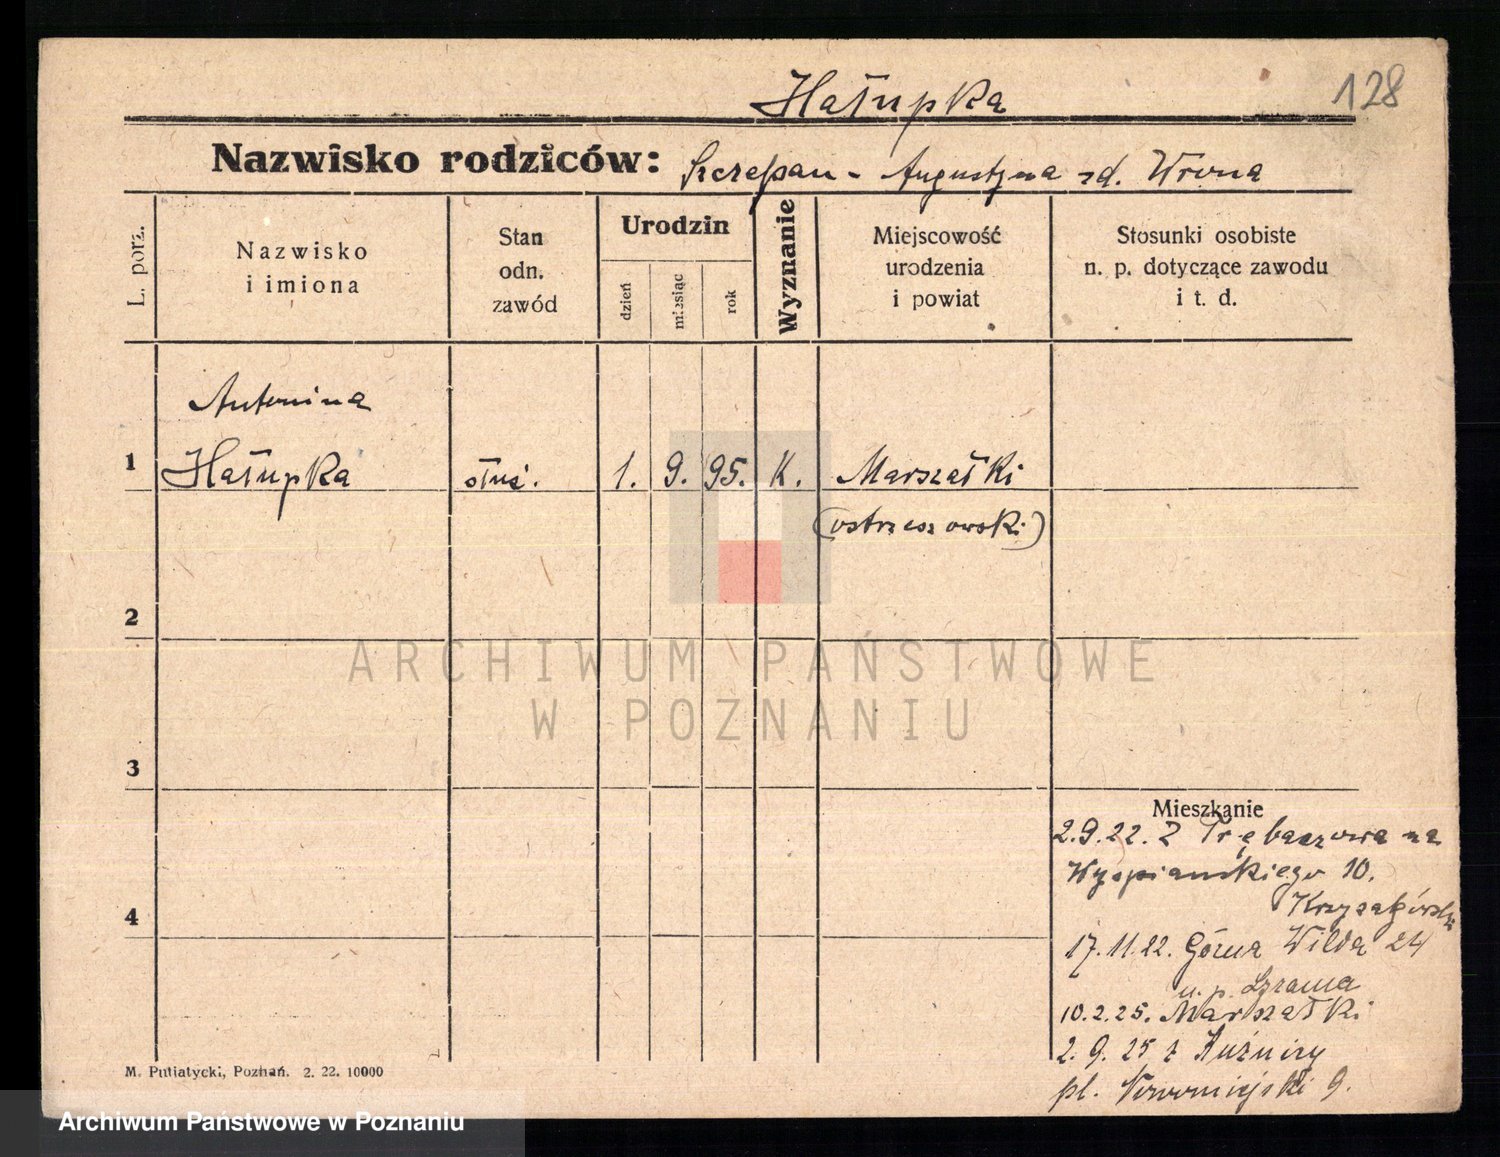 Hałupka
128
Nazwisko rodziców: Szczepan - Augustyna zd. Wrona
L. porz.
Nazwisko
i imiona
Stan
odn.
zawód
Urodzin
dzień
miesiąc
rok
Wyznanie
Miejscowość
urodzenia
i powiat
Stosunki osobiste
n. p. dotyczące zawodu
i t. d.
Antonina
1 Hałupka służ. 1. 9. 95. K. Marszałki
(ostrzeszowski)
2
ARCHIWUM PAŃSTWOWE
W POZNANIU
3
Mieszkanie
2.9.22. Z Trębaczowa na
Wyspiańskiego 10.
4
17.11.22. Górna Wilda 24
u. p. Szrama
10.2.25. Marszałki
2.9.25 z Kuźnicy
pl. Nowomiejski 9.
M. Putiatycki, Poznań. 2. 22. 10000
Archiwum Państwowe w Poznaniu